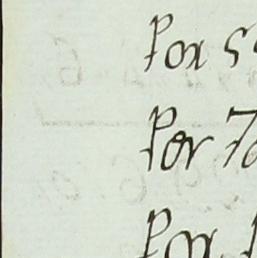 Por 5
Por 7
Por